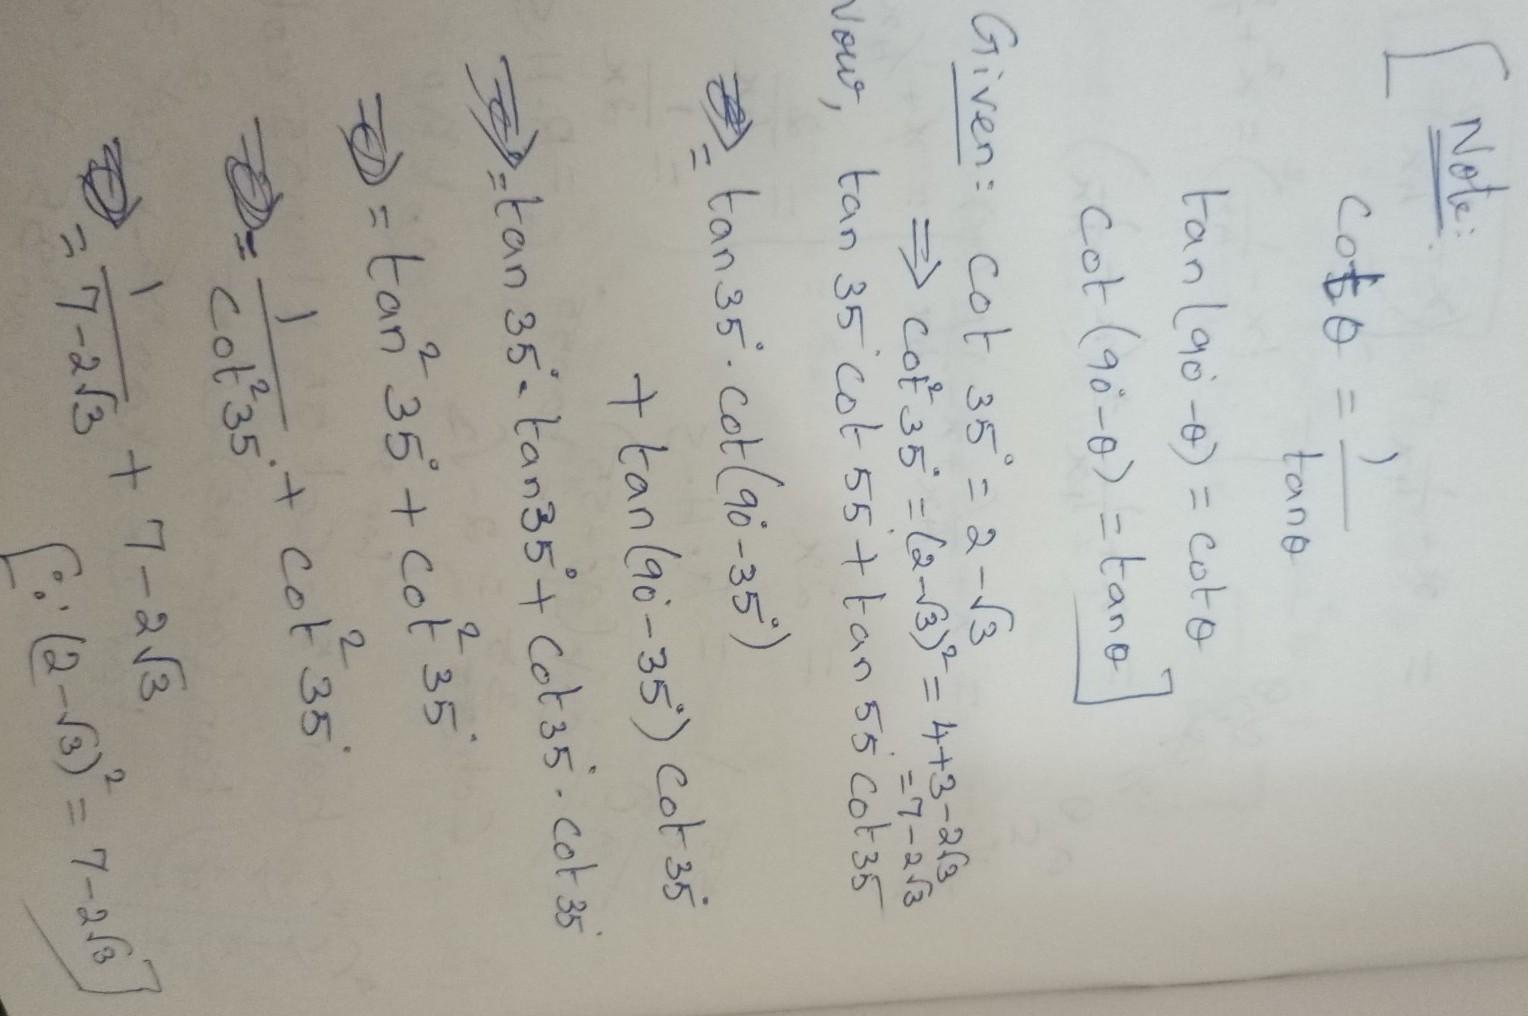 [Note:
cotθ = 1/tanθ
tan(90°-θ) = cotθ
cot(90°-θ) = tanθ]
Given: cot 35° = 2-√3
⇒ cot²35° = (2-√3)² = 4+3-2√3
= 7-2√3
Now, tan 35° cot 55 + tan 55° cot 35
= tan35°. cot(90°-35°)
+ tan(90°-35°) cot 35°
= tan 35°. tan35° + cot 35°. cot 35°
= tan² 35° + cot² 35°
= 1/cot²35° + cot² 35°
= 1/7-2√3 + 7-2√3
[∵ (2-√3)² = 7-2√3]